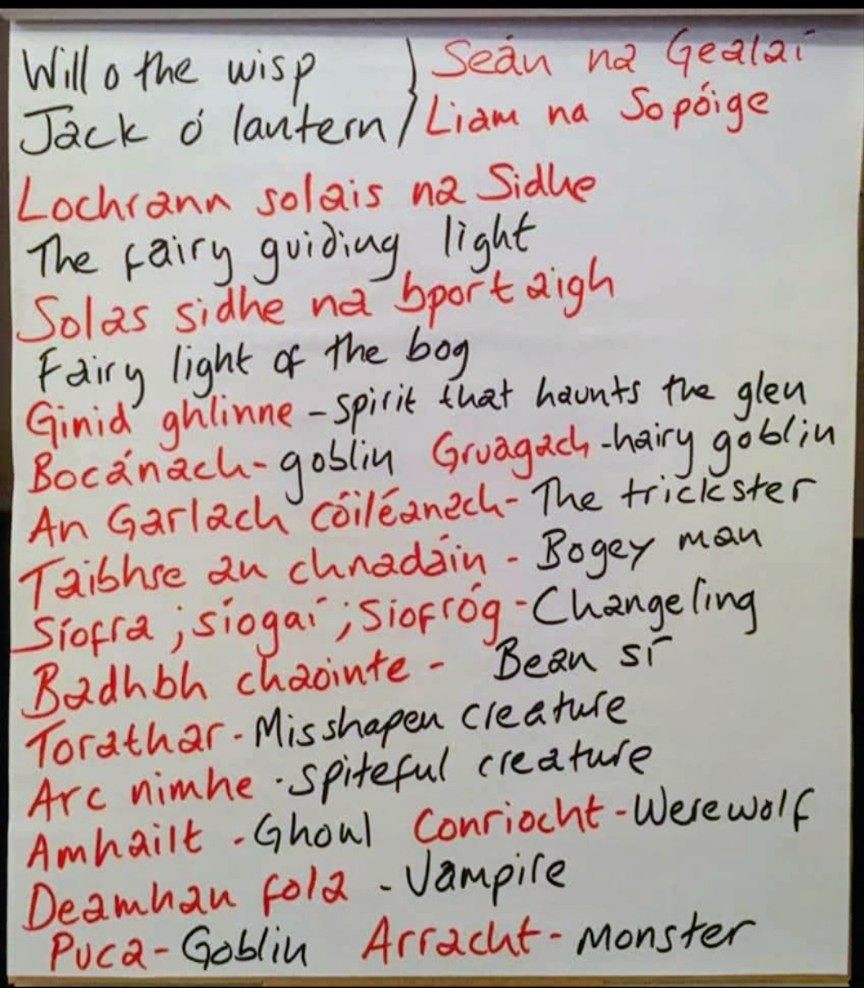 Will o the wisp } Seán na Gealaí
Jack ó lantern } Liam na Sopóige
Lochrann solais na Sidhe
The fairy guiding light
Solas sidhe na bportaigh
Fairy light of the bog
Ginid ghlinne - spirit that haunts the glen
Bocánach - goblin Gruagach - hairy goblin
An Garlach cóiléanach - The trickster
Taibhse an chnadáin - Bogey man
Síofra ; síogaí ; Siofróg - Changeling
Badhbh chaointe - Bean sí
Torathar - Misshapen creature
Arc nimhe - spiteful creature
Amhailt - Ghoul Conriocht - Werewolf
Deamhan fola - Vampire
Puca - Goblin Arracht - monster